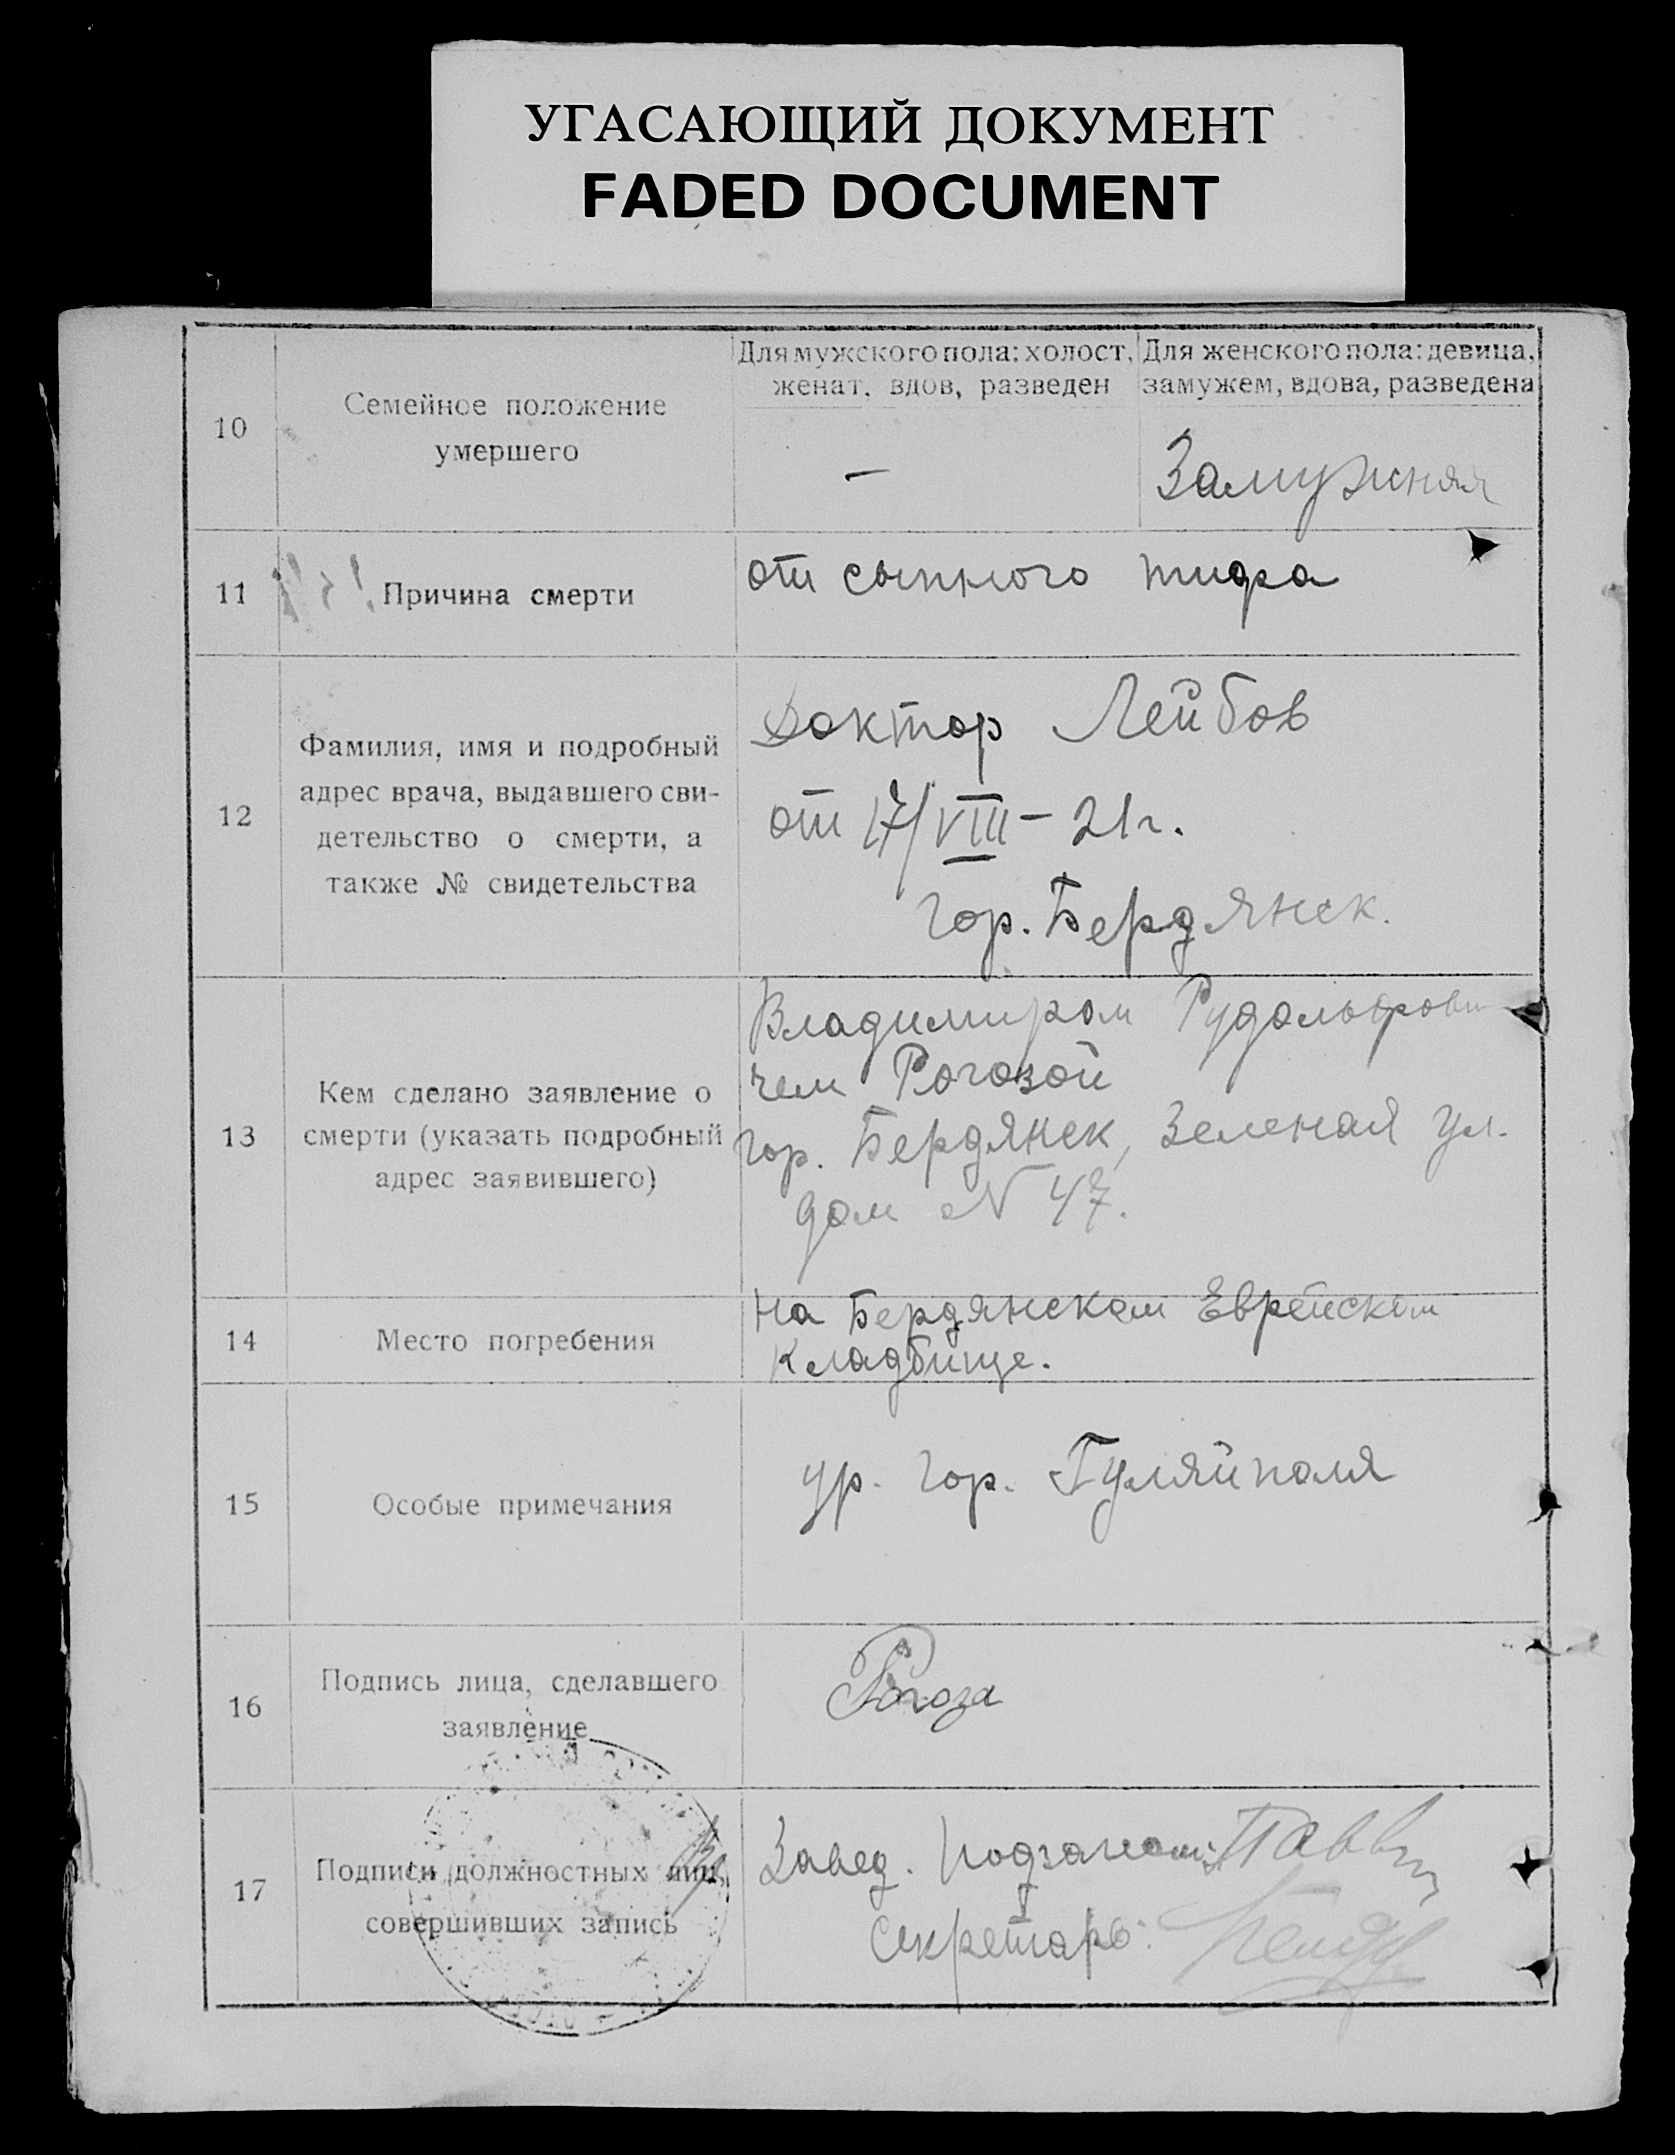 УГАСАЮЩИЙ ДОКУМЕНТ
FADED DOCUMENT
10
Семейное положение
умершего
Для мужского пола: холост,
женат, вдов, разведен
—
Для женского пола: девица,
замужем, вдова, разведена
Замужняя
11
Причина смерти
от сыпного тифа
12
Фамилия, имя и подробный
адрес врача, выдавшего сви-
детельство о смерти, а
также № свидетельства
Доктор Лейбов
от 17/VIII – 21 г.
гор. Бердянск.
13
Кем сделано заявление о
смерти (указать подробный
адрес заявившего)
Владимиром Рудольфови
чем Рогозой
гор. Бердянск, Зеленая ул.
дом N 47.
14
Место погребения
на Бердянском Еврейском
кладбище.
15
Особые примечания
ур. гор. Гуляйполя
16
Подпись лица, сделавшего
заявление
Рогоза
17
Подписи должностных лиц,
совершивших запись
Завед.
Секретарь: